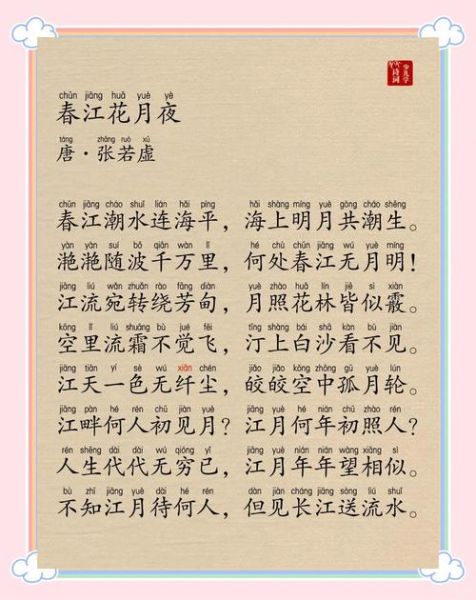 少儿学
诗词
chūn jiāng huā yuè yè
春江花月夜
táng zhāng ruò xū
唐·张若虚
chūn jiāng cháo shuǐ lián hǎi píng hǎi shàng míng yuè gòng cháo shēng
春江潮水连海平，海上明月共潮生。
yàn yàn suí bō qiān wàn lǐ hé chù chūn jiāng wú yuè míng
滟滟随波千万里，何处春江无月明！
jiāng liú wǎn zhuǎn rào fāng diàn yuè zhào huā lín jiē sì xiàn
江流宛转绕芳甸，月照花林皆似霰。
kōng lǐ liú shuāng bù jué fēi tīng shàng bái shā kàn bù jiàn
空里流霜不觉飞，汀上白沙看不见。
jiāng tiān yí sè wú xiān chén jiǎo jiǎo kōng zhōng gū yuè lún
江天一色无纤尘，皎皎空中孤月轮。
jiāng pàn hé rén chū jiàn yuè jiāng yuè hé nián chū zhào rén
江畔何人初见月？江月何年初照人？
rén shēng dài dài wú qióng yǐ jiāng yuè nián nián wàng xiāng sì
人生代代无穷已，江月年年望相似。
bù zhī jiāng yuè dài hé rén dàn jiàn cháng jiāng sòng liú shuǐ
不知江月待何人，但见长江送流水。